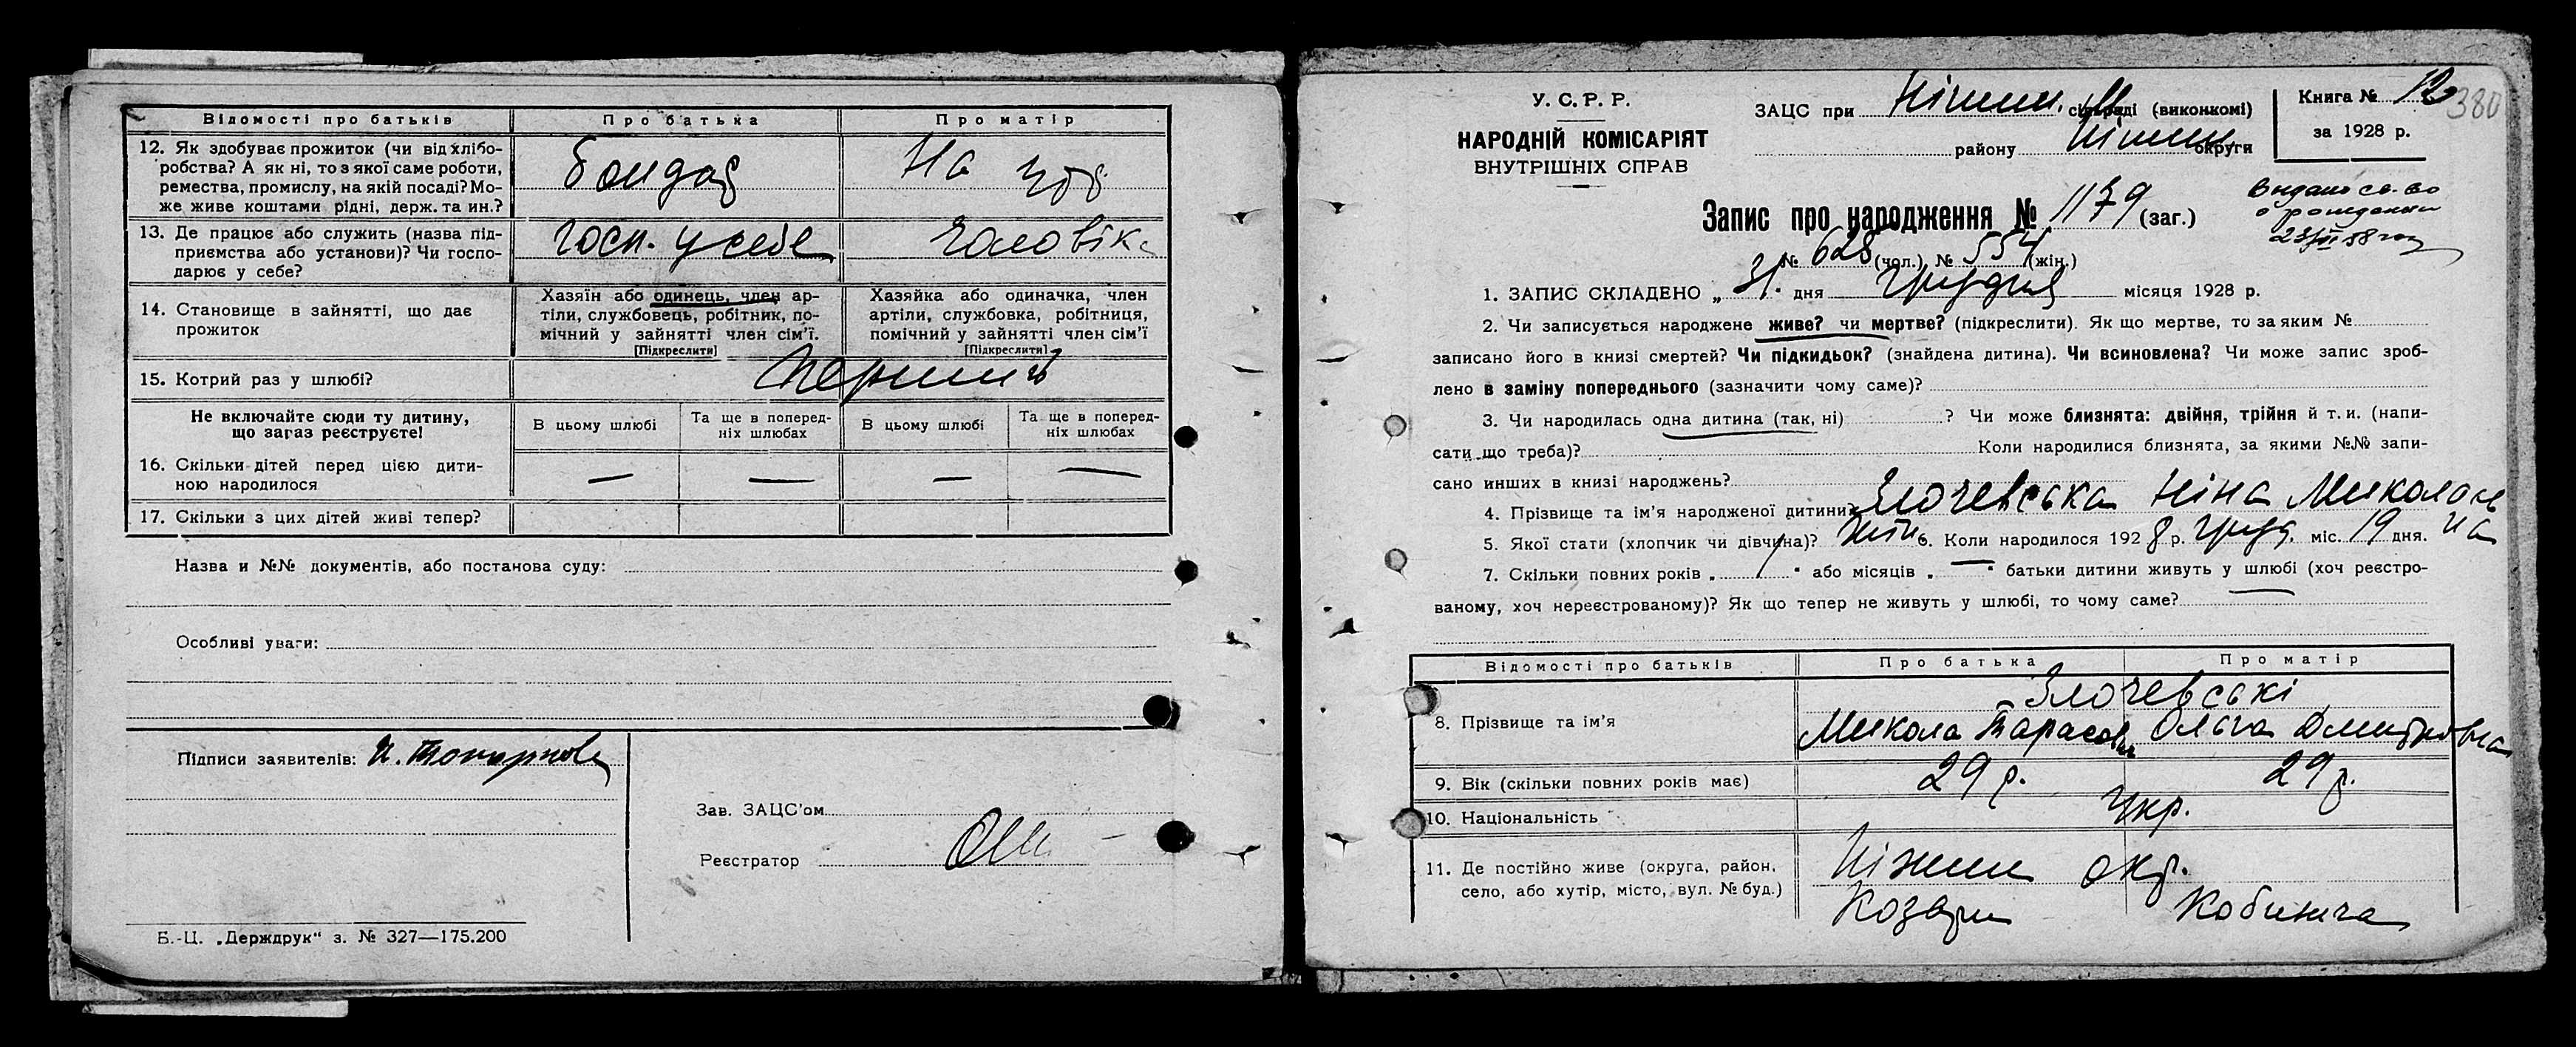 Відомості про батьків
Про батька
Про матір
12. Як здобуває прожиток (чи від хлібо-
робства? А як ні, то з якої саме роботи,
ремества, промислу, на якій посаді? Мо-
же живе коштами рідні, держ. та ин.?
бондар
На
13. Де працює або служить (назва під-
приємства або установи)? Чи госпо-
дарює у себе?
госп. у себе
чоловіка
14. Становище в зайнятті, що дає
прожиток
Хазяїн або одинець, член ар-
тіли, службовець, робітник, по-
мічний у зайнятті член сім'ї.
[Підкреслити]
Хазяйка або одиначка, член
артіли, службовка, робітниця,
помічний у зайнятті член сім'ї
[Підкреслити]
15. Котрий раз у шлюбі?
Перший
Не включайте сюди ту дитину,
що зараз реєструєте!
В цьому шлюбі
Та ще в поперед-
ніх шлюбах
В цьому шлюбі
Та ще в поперед-
ніх шлюбах
16. Скільки дітей перед цією дити-
ною народилося
— — — —
17. Скільки з цих дітей живі тепер?
Назва и №№ документів, або постанова суду:
Особливі уваги:
Підписи заявителів:
Зав. ЗАЦС'ом
Реєстратор
Б.-Ц. „Держдрук“ з. № 327—175.200
У. С. Р. Р.
НАРОДНІЙ КОМІСАРІЯТ
ВНУТРІШНІХ СПРАВ
ЗАЦС при Ніжин. сільраді (виконкомі)
району Ніжин. округи
Книга № 12
380
за 1928 р.
Запис про народження № 1179 (заг.)
Выдано св-во
о рождении
№ 628 (чол.) № 554 (жін.)
1. ЗАПИС СКЛАДЕНО „ 31. дня Грудня місяця 1928 р.
2. Чи записується народжене живе? чи мертве? (підкреслити). Як що мертве, то за яким №
записано його в книзі смертей? Чи підкидьок? (знайдена дитина). Чи всиновлена? Чи може запис зроб-
лено в заміну попереднього (зазначити чому саме)?
3. Чи народилась одна дитина (так, ні) ? Чи може близнята: двійня, трійня й т. и. (напи-
сати що треба)? Коли народилися близнята, за якими №№ запи-
сано инших в книзі народжень?
4. Прізвище та ім'я народженої дитини? Злочевська Ніна Миколаїв
на
5. Якої стати (хлопчик чи дівчина)? Жін. 6. Коли народилося 1928 р. Грудн. міс. 19 дня.
7. Скільки повних років „ 1 “ або місяців „ — “ батьки дитини живуть у шлюбі (хоч реєстро-
ваному, хоч нереєстрованому)? Як що тепер не живуть у шлюбі, то чому саме? —
Відомості про батьків
Про батька
Про матір
8. Прізвище та ім'я
Злочевські
Микола Тарасович
Ольга Дмитровна
9. Вік (скільки повних років має)
29 р.
29 р.
10. Національність
Укр.
11. Де постійно живе (округа, район,
село, або хутір, місто, вул. № буд.)
Ніжин окр.